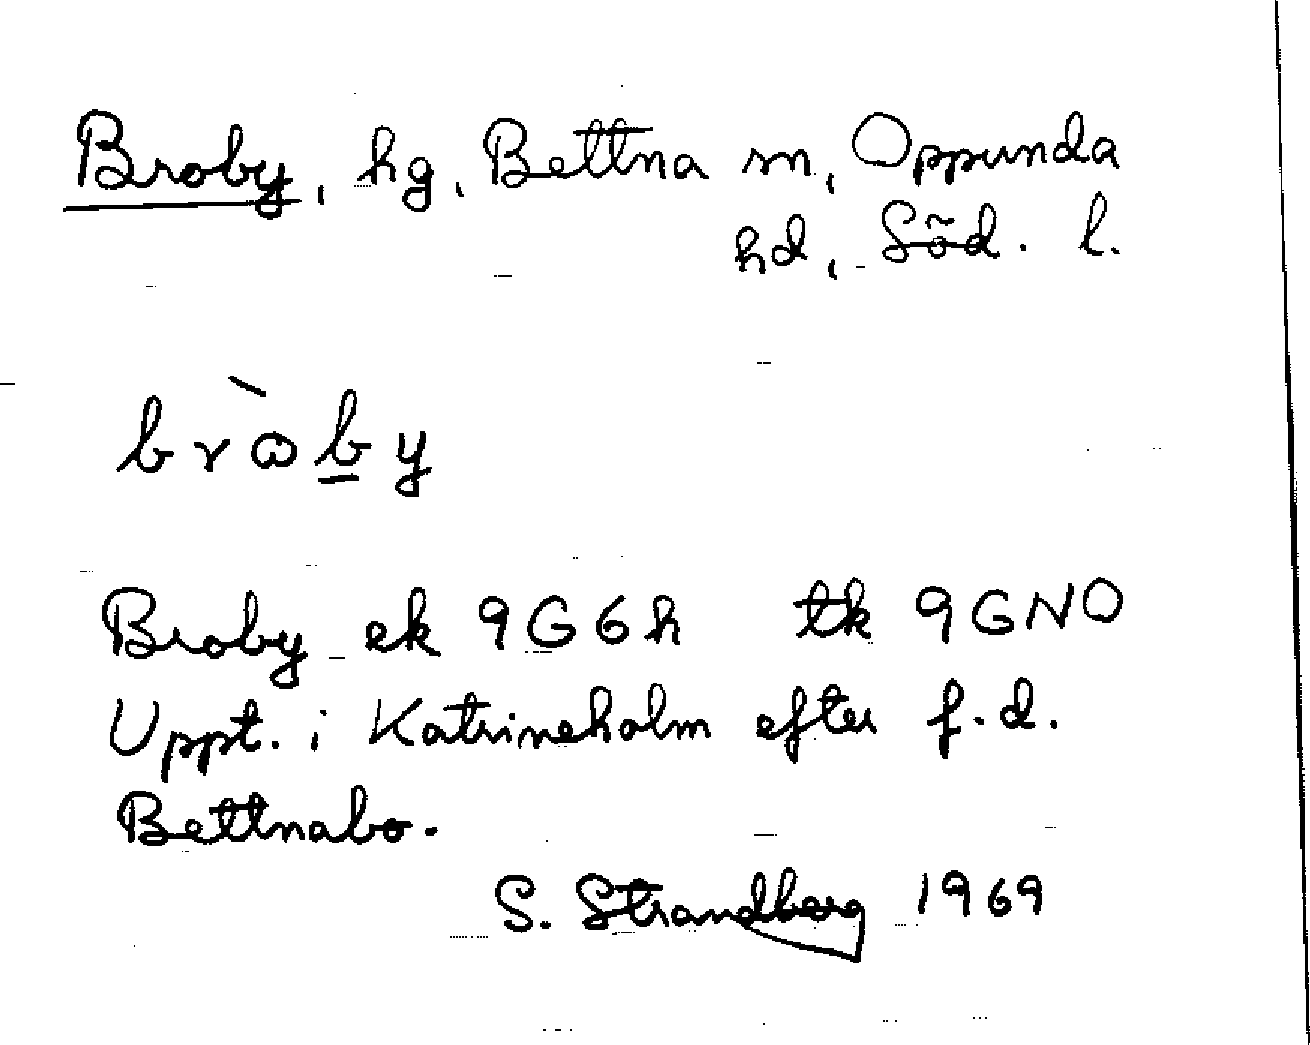 Broby, hg, Bettna sn, Oppunda
hd, Söd. l.
brὼb̲y
Broby ek 9G6h tk 9GNO
Uppt. i Katrineholm efter f.d.
Bettnabo.
S. Strandberg 1969